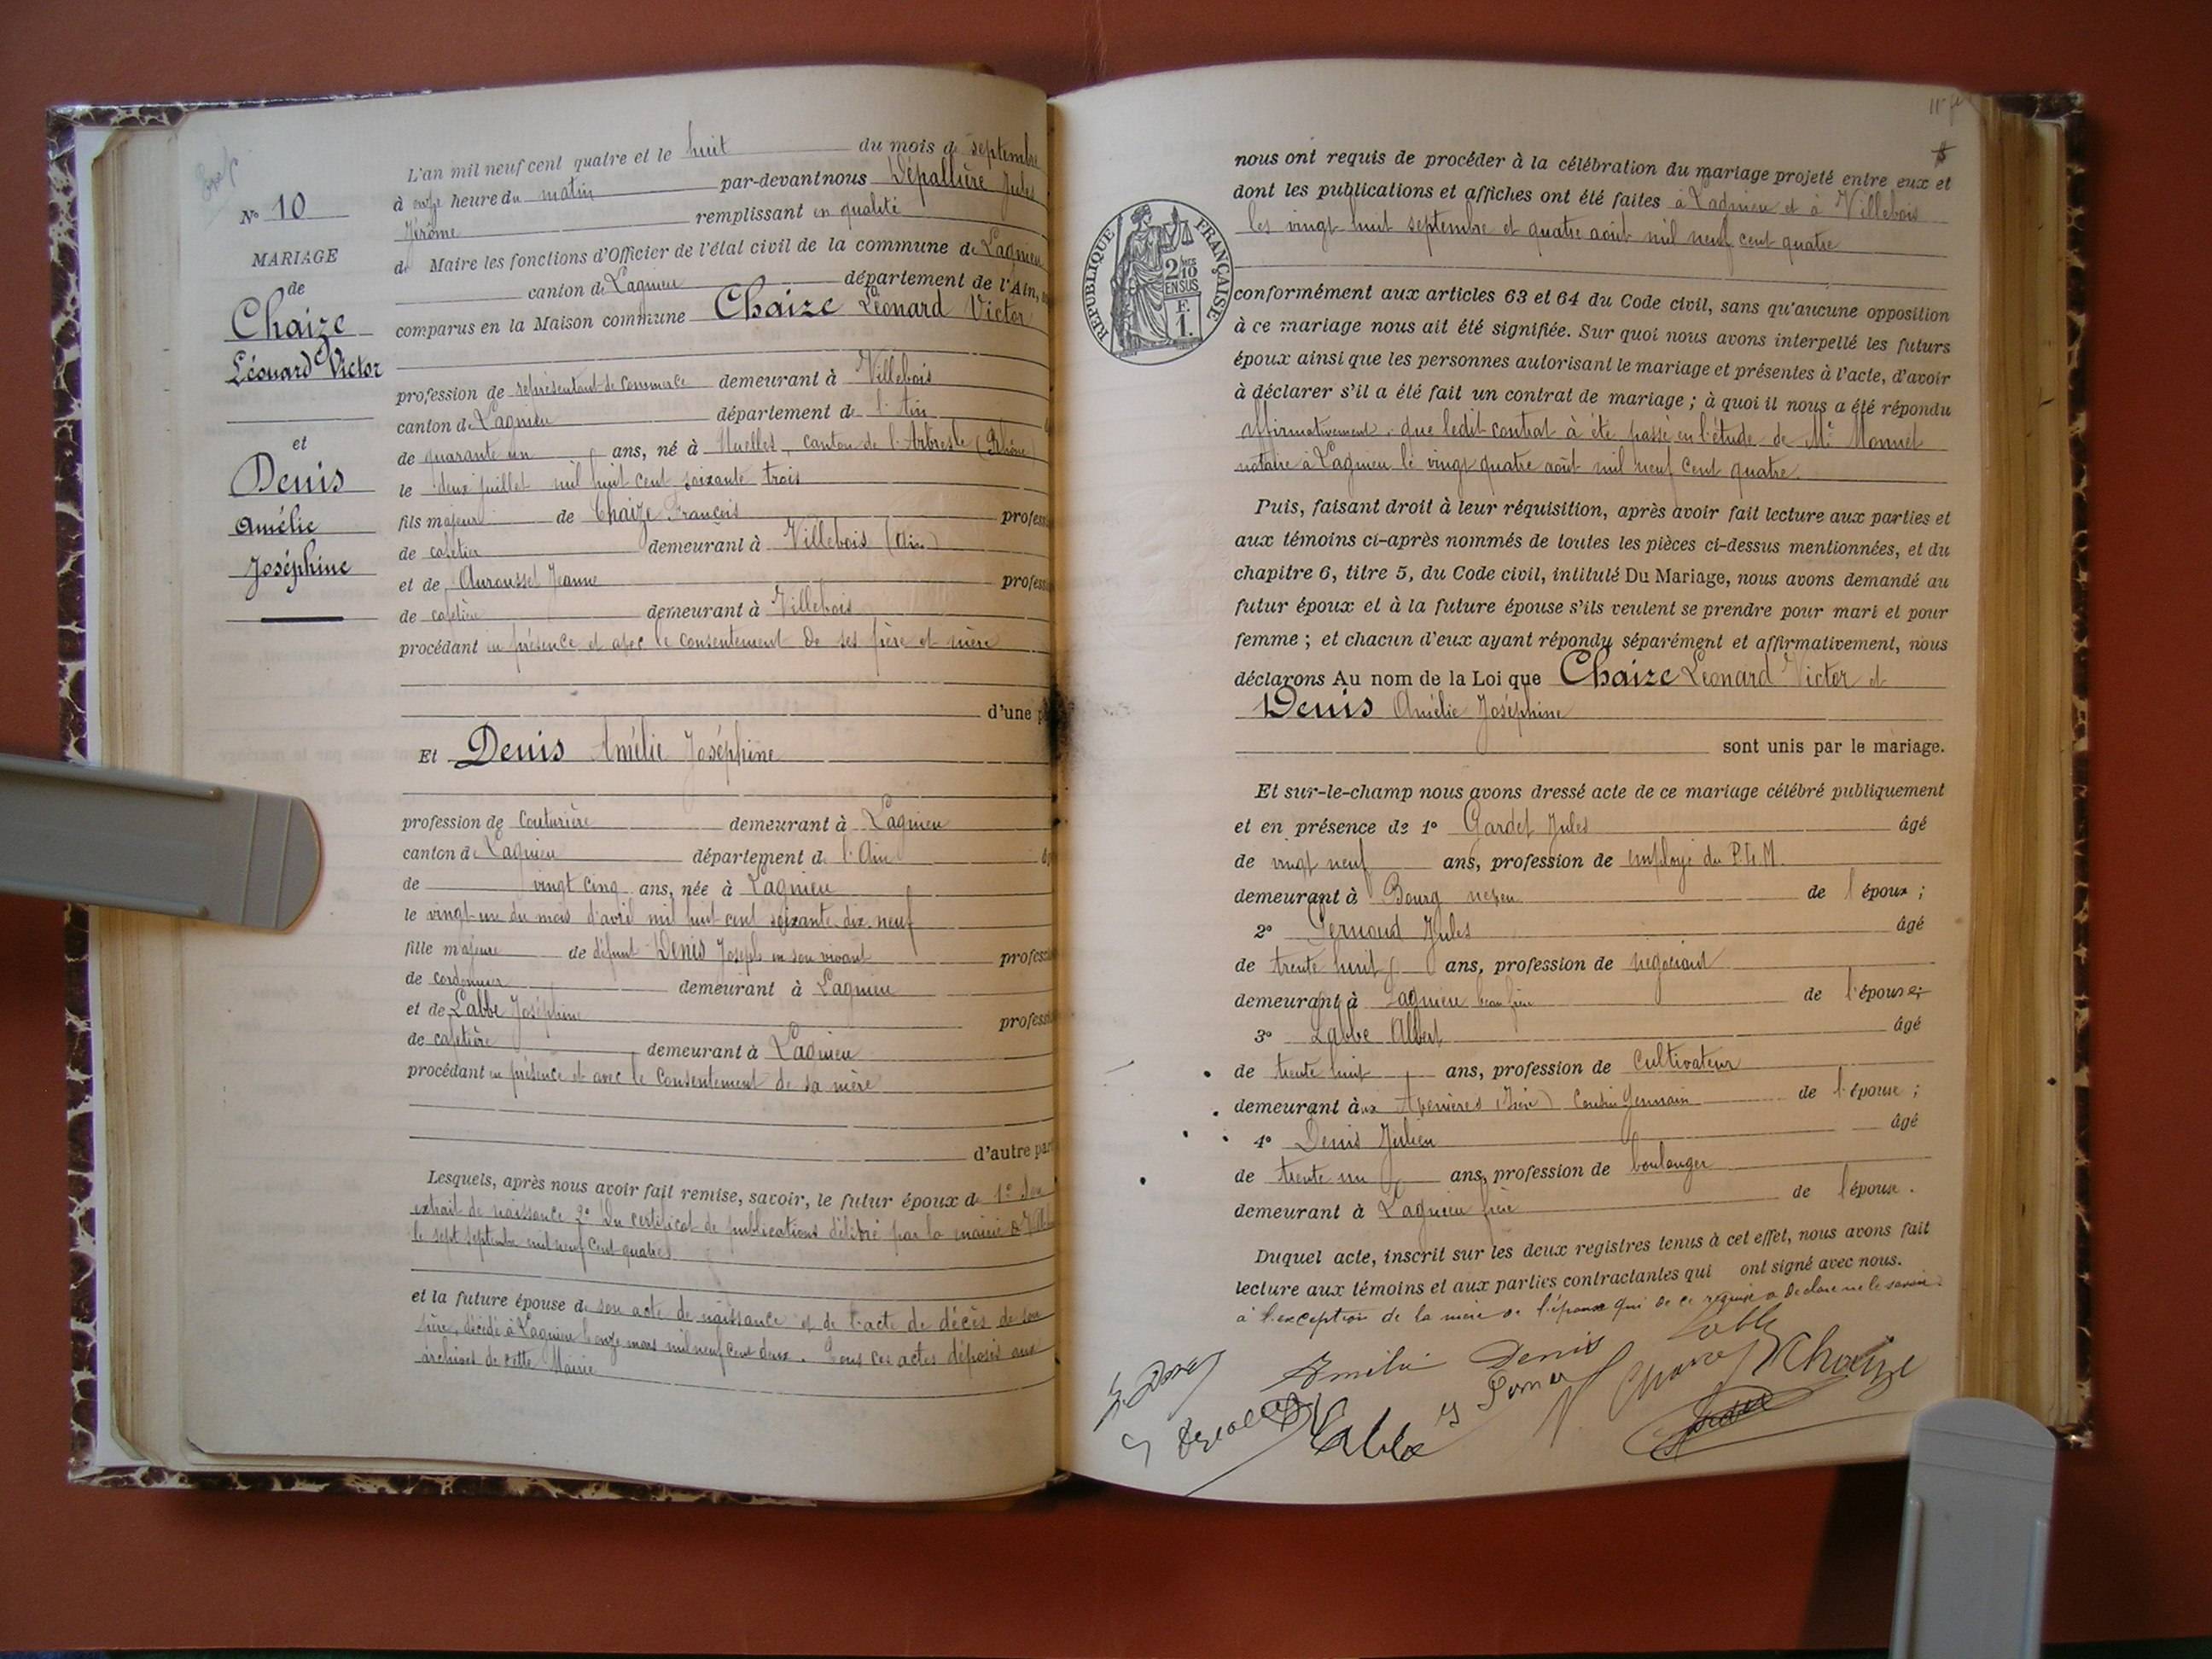 N° 10
MARIAGE
de
Chaize
Léonard Victor
et
Denis
Amélie
Joséphine
L'an mil neuf cent quatre et le huit du mois de septembre
à onze heure du matin par-devant nous Dépallière Jules
Jérôme remplissant en qualité
de Maire les fonctions d'Officier de l'état civil de la commune de Lagnieu
canton de Lagnieu département de l'Ain,
comparus en la Maison commune Chaize Léonard Victor
profession de représentant de commerce demeurant à Villebois
canton de Lagnieu département de l'Ain
de quarante un ans, né à Nuelles, canton de l'Arbresle (Rhône)
le deux juillet mil huit cent soixante trois
fils majeur de Chaize François profess
de cafetier demeurant à Villebois (Ain)
et de Auroussel Jeanne profess
de cafetière demeurant à Villebois
procédant en présence et avec le consentement de ses père et mère
d'une p
Et Denis Amélie Joséphine
profession de Couturière demeurant à Lagnieu
canton de Lagnieu département de l'Ain
de vingt cinq ans, née à Lagnieu
le vingt-un du mois d'avril mil huit cent soixante dix-neuf
fille majeure de défunt Denis Joseph en son vivant profess
de cordonnier demeurant à Lagnieu
et de Labbe Joséphine profess
de cafetière demeurant à Lagnieu
procédant en présence et avec le consentement de sa mère
d'autre par
Lesquels, après nous avoir fait remise, savoir, le futur époux de 1° Son
extrait de naissance 2° Du certificat de publications délibré par la mairie de
le sept septembre mil neuf cent quatre
et la future épouse de son acte de naissance et de l'acte de décès de son
père, décédé à Lagnieu le onze mars mil neuf cent deux. Tous ces actes déposés aux
archives de cette Mairie
RÉPUBLIQUE FRANÇAISE
2/10
EN SUS
F.
1.
nous ont requis de procéder à la célébration du mariage projeté entre eux et
dont les publications et affiches ont été faites à Lagnieu et à Villebois
les vingt-huit septembre et quatre août mil neuf cent quatre
conformément aux articles 63 et 64 du Code civil, sans qu'aucune opposition
à ce mariage nous ait été signifiée. Sur quoi nous avons interpellé les futurs
époux ainsi que les personnes autorisant le mariage et présentes à l'acte, d'avoir
à déclarer s'il a été fait un contrat de mariage ; à quoi il nous a été répondu
affirmativement, que ledit contrat à été passé en l'étude de Me Monnet
notaire à Lagnieu le vingt quatre août mil neuf cent quatre.
Puis, faisant droit à leur réquisition, après avoir fait lecture aux parties et
aux témoins ci-après nommés de toutes les pièces ci-dessus mentionnées, et du
chapitre 6, titre 5, du Code civil, intitulé Du Mariage, nous avons demandé au
futur époux et à la future épouse s'ils veulent se prendre pour mari et pour
femme ; et chacun d'eux ayant répondu séparément et affirmativement, nous
déclarons Au nom de la Loi que Chaize Léonard Victor et
Denis Amélie Joséphine
sont unis par le mariage.
Et sur-le-champ nous avons dressé acte de ce mariage célébré publiquement
et en présence de 1° Gardet Jules âgé
de vingt neuf ans, profession de employé du P.L.M.
demeurant à Bourg neveu de l'époux ;
2° Pernoud Jules âgé
de trente huit ans, profession de négociant
demeurant à Lagnieu beau frère de l'épouse
3° Labbe Albert âgé
de trente huit ans, profession de Cultivateur
demeurant aux Avenières (Isère) Cousin Germain de l'épouse ;
4° Denis Julien âgé
de trente un ans, profession de boulanger
demeurant à Lagnieu frère de l'épouse.
Duquel acte, inscrit sur les deux registres tenus à cet effet, nous avons fait
lecture aux témoins et aux parties contractantes qui ont signé avec nous.
à l'exception de la mère de l'époux qui de ce requise a déclaré ne le savoir.
Labbe
Amélie Denis
Chaize
Labbe